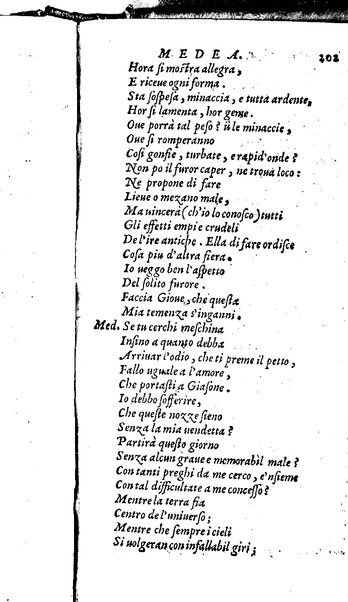 MEDEA. 202
Hora si mostra allegra,
E riceue ogni forma.
Sta sospesa, minaccia, e tutta ardente,
Hor si lamenta, hor geme.
Oue porrà tal peso? ù le minaccie,
Oue si romperanno
Cosi gonfie, turbate, e rapid'onde?
Non po il furor caper, ne troua loco:
Ne propone di fare
Lieue o mezano male,
Ma uincerà (ch'io lo conosco) tutti
Gli effetti empi e crudeli
De l'ire antiche. Ella di fare ordisce
Cosa piu d'altra fiera.
Io ueggo ben l'aspetto
Del solito furore.
Faccia Gioue, che questa
Mia temenza s'inganni.
Med. Se tu cerchi meschina
Insino a quanto debba
Arriuar l'odio, che ti preme il petto,
Fallo uguale a l'amore,
Che portasti a Giasone.
Io debbo sofferire,
Che queste nozze sieno
Senza la mia uendetta?
Partirà questo giorno
Senza alcun graue e memorabil male?
Con tanti preghi da me cerco, e'nsieme
Con tal difficultate a me concesso?
Mentre la terra fia
Centro de l'uniuerso;
Mentre che sempre i cieli
Si uolgeran con infallabil giri;